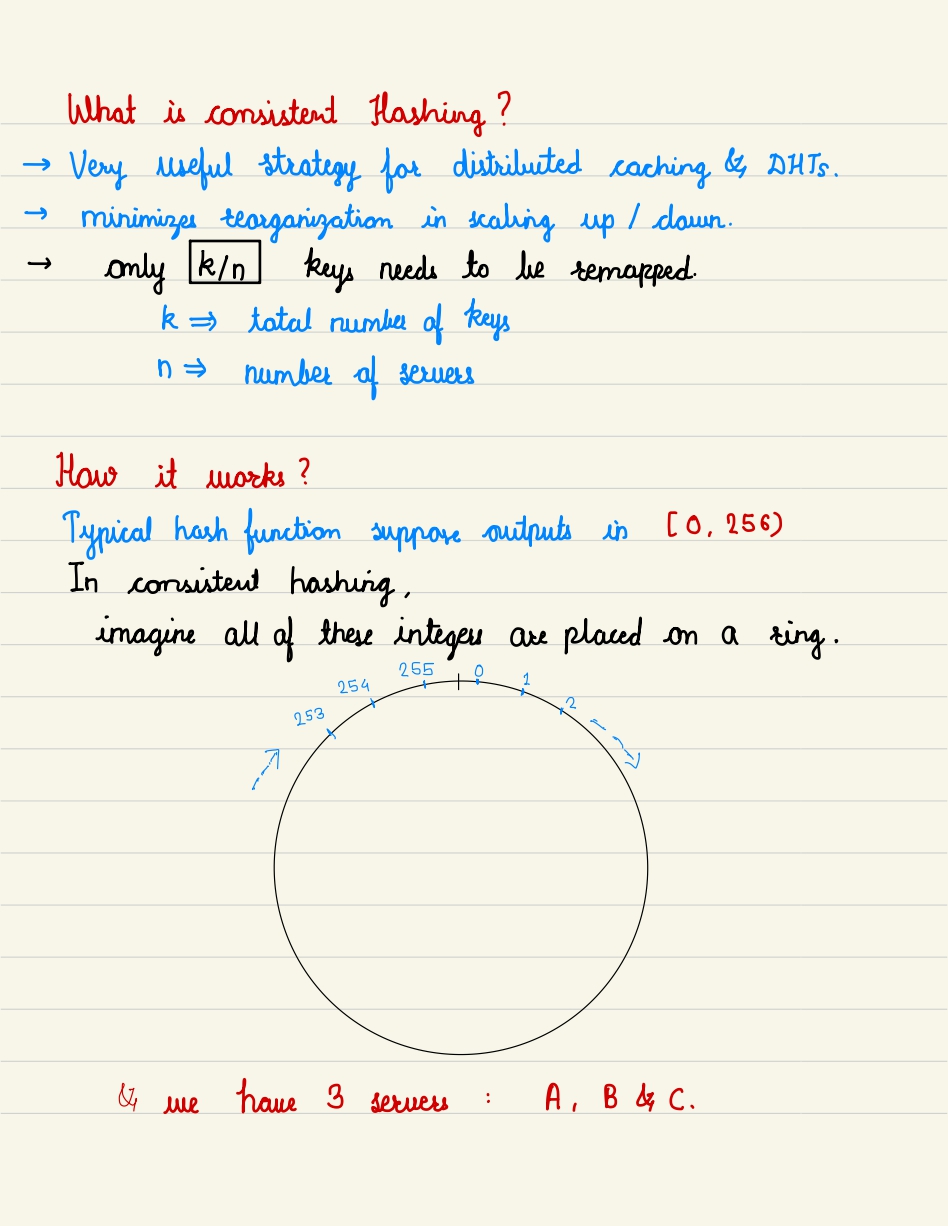 What is consistent Hashing?
→ Very useful strategy for distributed caching & DHTs.
→ minimizes reorganization in scaling up / down.
→ only k/n keys needs to be remapped.
k ⇒ total number of keys
n ⇒ number of servers
How it works?
Typical hash function suppose outputs in [0, 256)
In consistent hashing,
imagine all of these integers are placed on a ring.
253 254 255 0 1 2
& we have 3 servers : A, B & C.